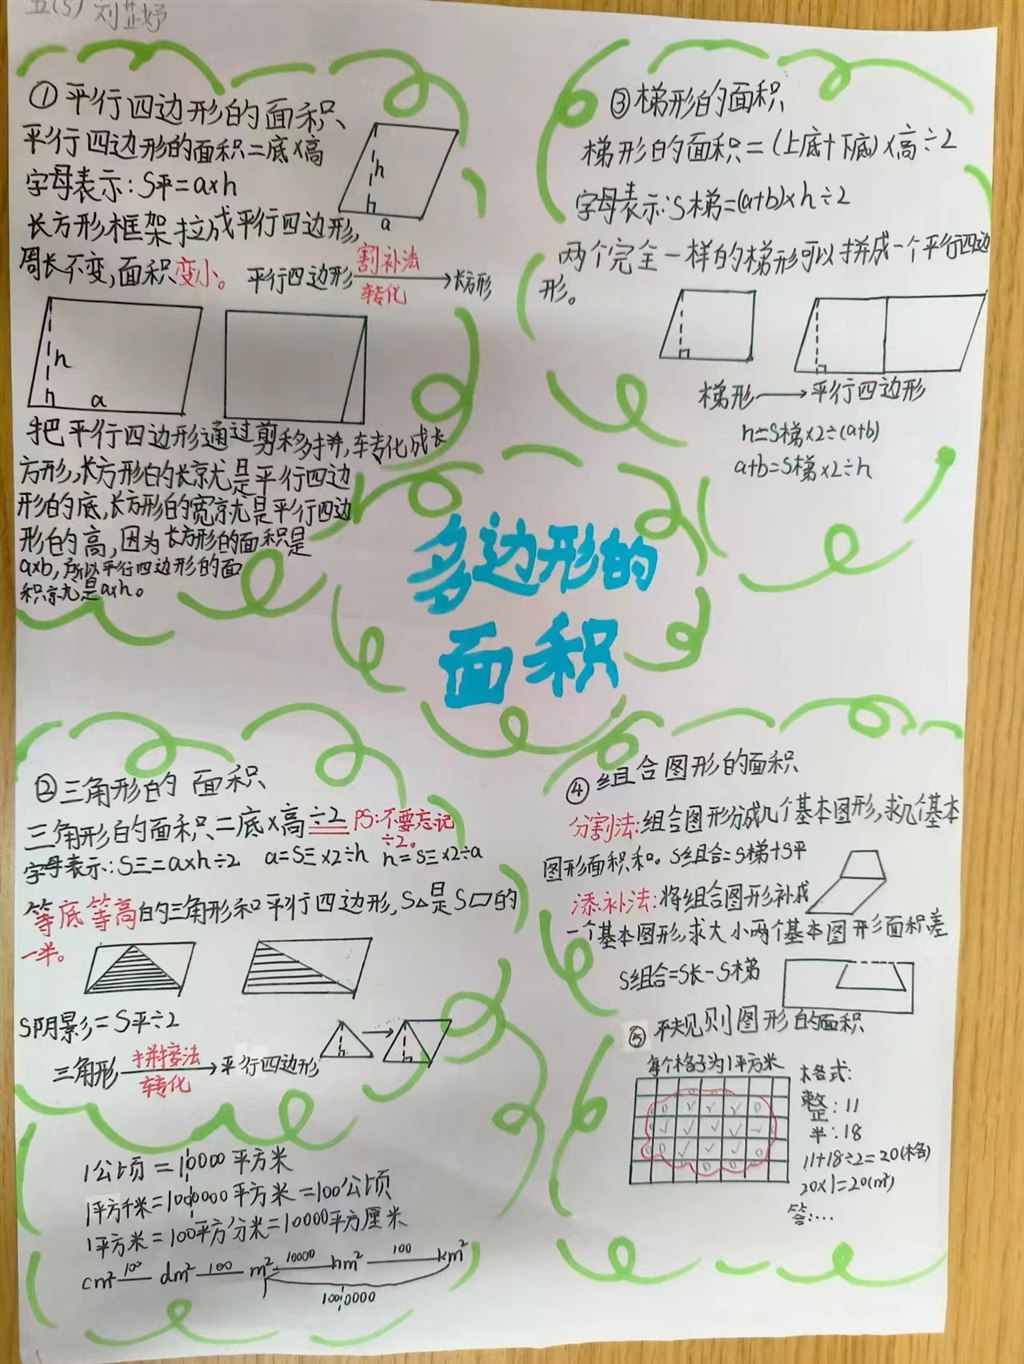 五(5) 刘芷妤
①平行四边形的面积
平行四边形的面积=底×高
字母表示:S平=a×h
长方形框架拉成平行四边形,
周长不变,面积变小。
平行四边形 割补法 转化 长方形
h
h
a
h
h
a
把平行四边形通过剪移拼,转化成长
方形,长方形的长就是平行四边
形的底,长方形的宽就是平行四边
形的高,因为长方形的面积是
a×b,所以平行四边形的面
积就是a×h。
③梯形的面积
梯形的面积=(上底+下底)×高÷2
字母表示:S梯=(a+b)×h÷2
两个完全一样的梯形可以拼成一个平行四边
形。
梯形→平行四边形
h=S梯×2÷(a+b)
a+b=S梯×2÷h
多边形的
面积
②三角形的面积
三角形的面积=底×高÷2 PS:不要忘记
÷2。
字母表示:S三=a×h÷2 a=S三×2÷h h=S三×2÷a
等底等高的三角形和平行四边形,S△是S▱的
一半。
S阴影=S平÷2
三角形 拼接法 转化 平行四边形
h
h
1公顷=10000平方米
1平方千米=1000000平方米=100公顷
1平方米=100平方分米=10000平方厘米
cm² 100 dm² 100 m² 10000 hm² 100 km²
1000000
④组合图形的面积
分割法:组合图形分成几个基本图形,求几个基本
图形面积和。S组合=S梯+S平
添补法:将组合图形补成
一个基本图形,求大小两个基本图形面积差
S组合=S长-S梯
⑤不规则图形的面积
每个格子为1平方米
格式:
整:11
半:18
11+18÷2=20(格)
20×1=20(m²)
答:…